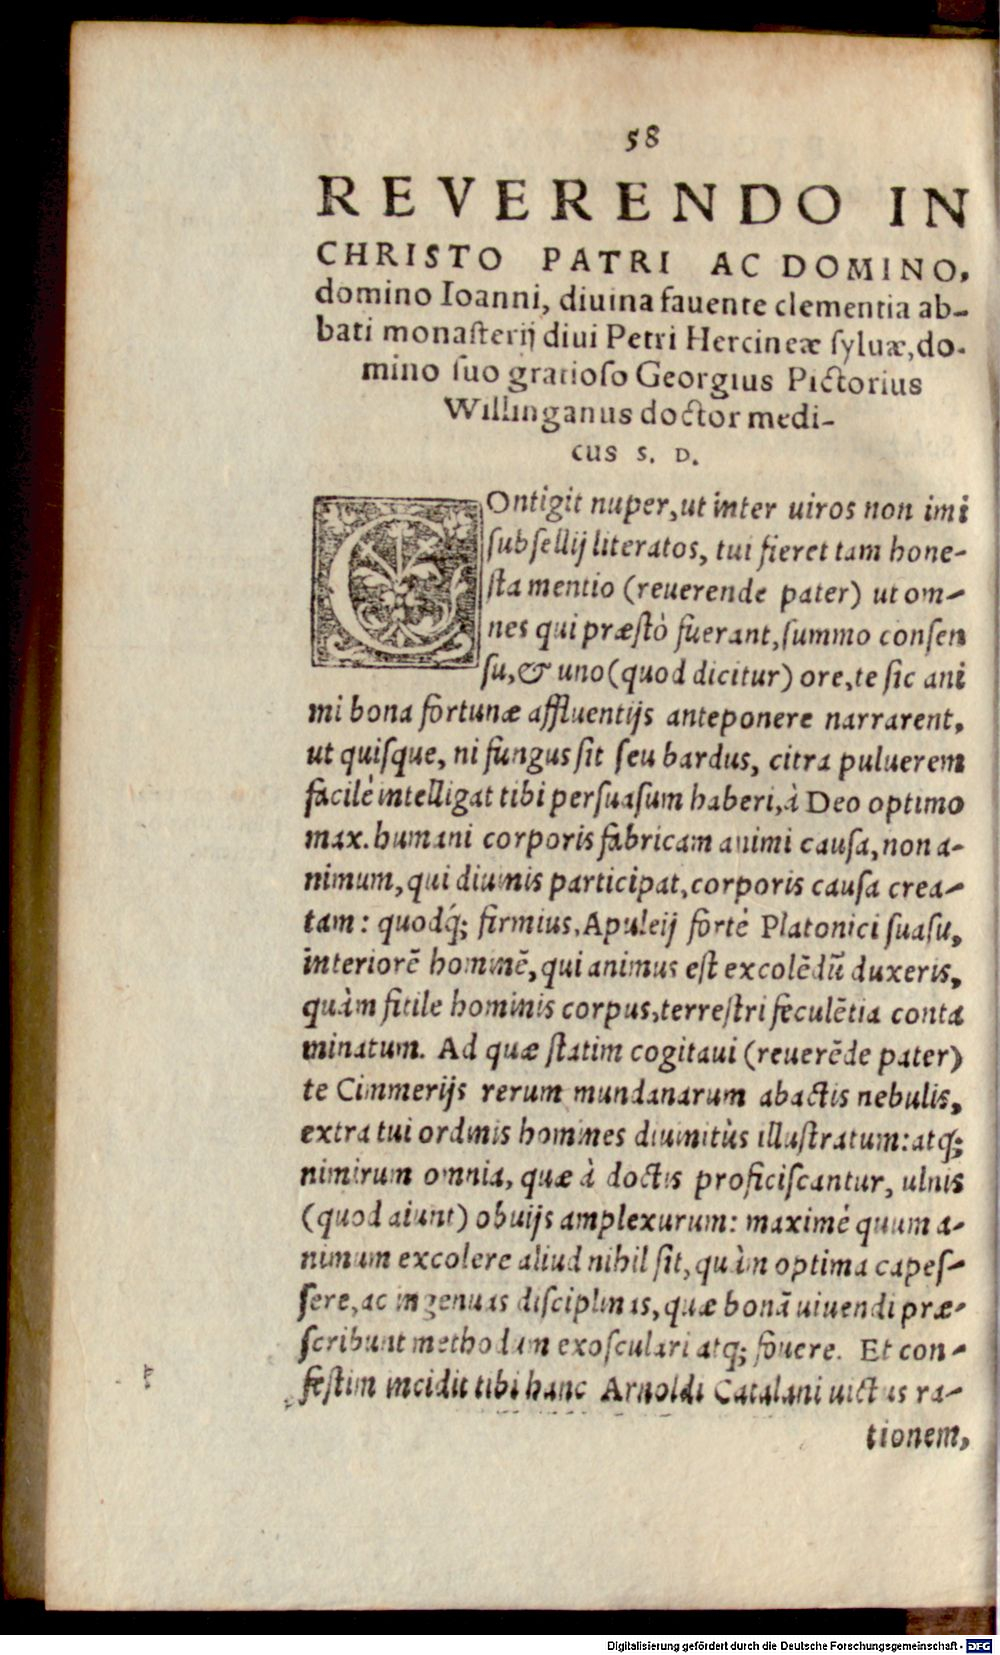 58
REVERENDO IN
CHRISTO PATRI AC DOMINO,
domino Ioanni, diuina fauente clementia ab-
bati monasterij diui Petri Hercineæ syluæ, do-
mino suo gratioso Georgius Pictorius
Willinganus doctor medi-
cus S. D.
COntigit nuper, ut inter uiros non imi
subsellij literatos, tui fieret tam hone-
sta mentio (reuerende pater) ut om-
nes qui præstò fuerant, summo consen
su, & uno (quod dicitur) ore, te sic ani
mi bona fortunæ affluentijs anteponere narrarent,
ut quisque, ni fungus sit seu bardus, citra puluerem
facilè intelligat tibi persuasum haberi, à Deo optimo
max. humani corporis fabricam animi causa, non a-
nimum, qui diuinis participat, corporis causa crea-
tam: quodq́; firmius, Apuleij fortè Platonici suasu,
interiorē hominē, qui animus est excolēdū duxeris,
quàm fitile hominis corpus, terrestri feculētia conta
minatum. Ad quæ statim cogitaui (reuerēde pater)
te Cimmerijs rerum mundanarum abactis nebulis,
extra tui ordinis homines diuinitùs illustratum: atq;
nimirum omnia, quæ à doctis proficiscantur, ulnis
(quod aiunt) obuijs amplexurum: maximè quum a-
nimum excolere aliud nihil sit, quàm optima capes-
sere, ac ingenuas disciplinas, quæ bonā uiuendi præ-
scribunt methodum exosculari atq; fouere. Et con-
festim incidit tibi hanc Arnoldi Catalani uictus ra-
tionem,
Digitalisierung gefördert durch die Deutsche Forschungsgemeinschaft - DFG